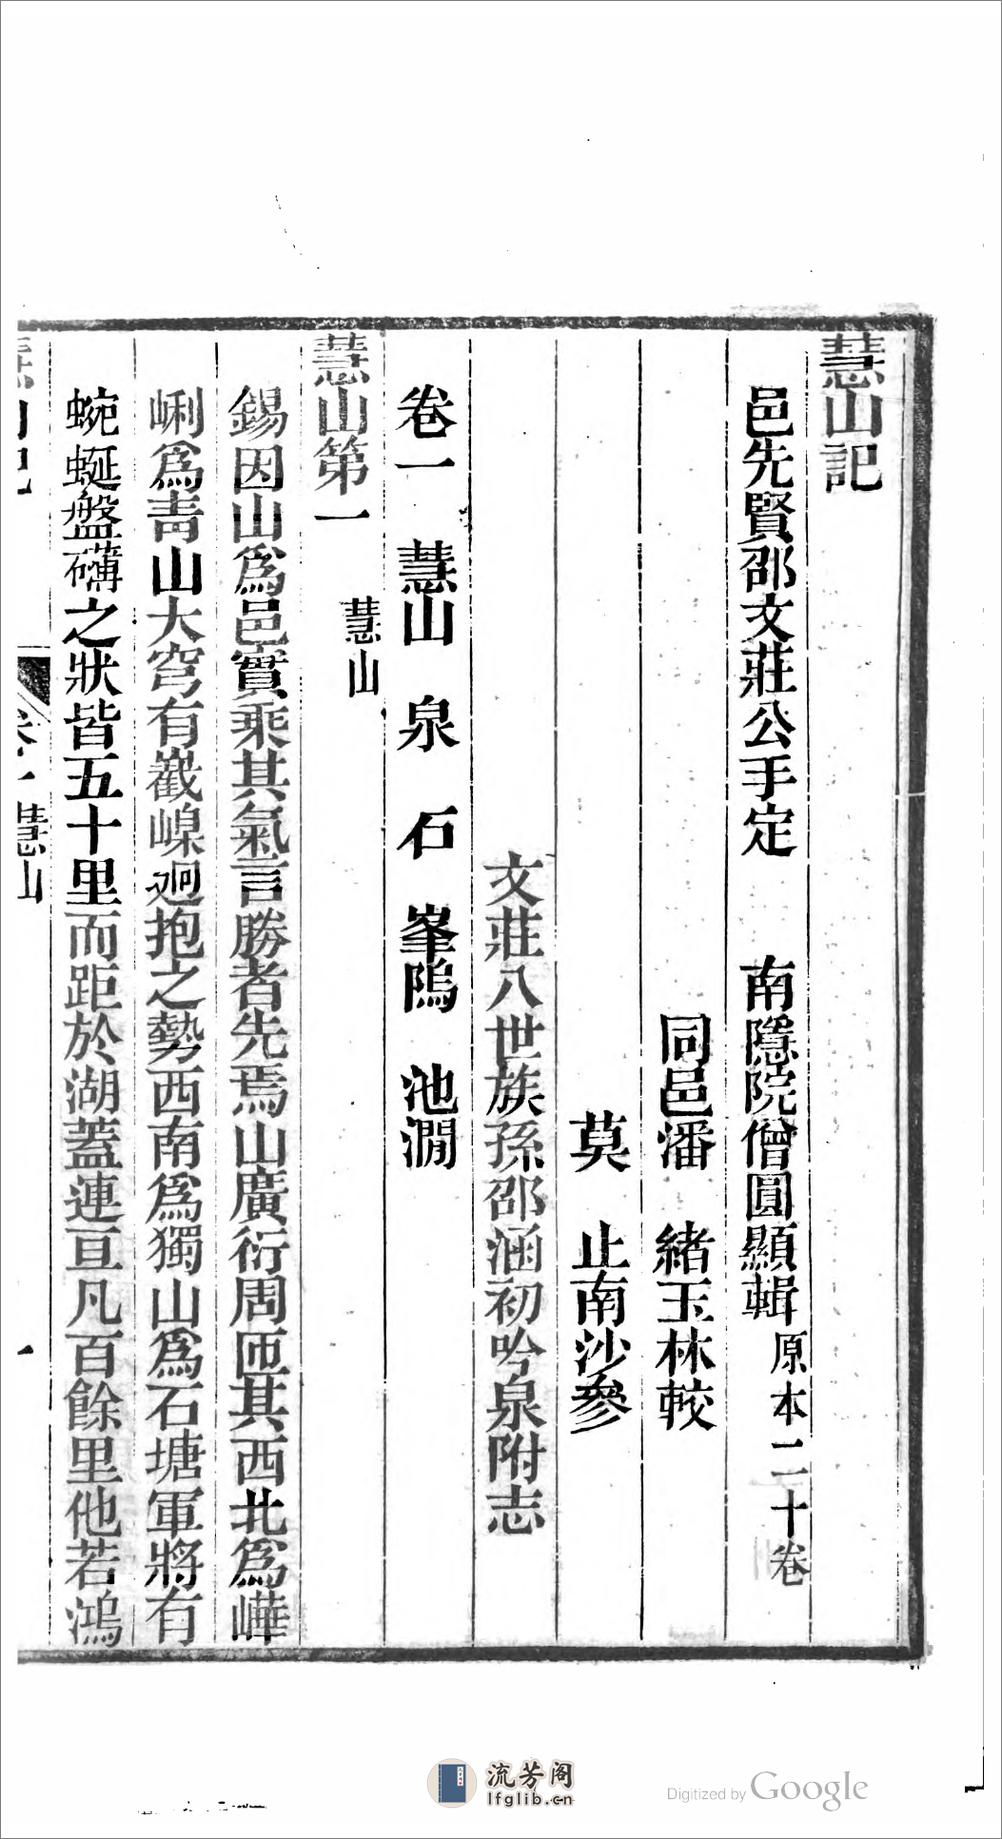 慧山記
邑先賢邵文莊公手定　南隱院僧圓顯輯原本二十卷
同邑潘　緒玉林較
莫　止南沙參
文莊八世族孫邵涵初吟泉附志
卷一　慧山　泉　石　峯隖　池澗
慧山第一　慧山
錫因山爲邑實乘其氣言勝者先焉山廣衍周匝其西北爲嶂
峢爲靑山大穹有巀嵲迴抱之勢西南爲獨山爲石塘軍將有
蜿蜒盤礴之狀皆五十里而距於湖蓋連亘凡百餘里他若鴻
慧山記　卷一慧山　一
流芳阁
lfglib.cn
Digitized by Google